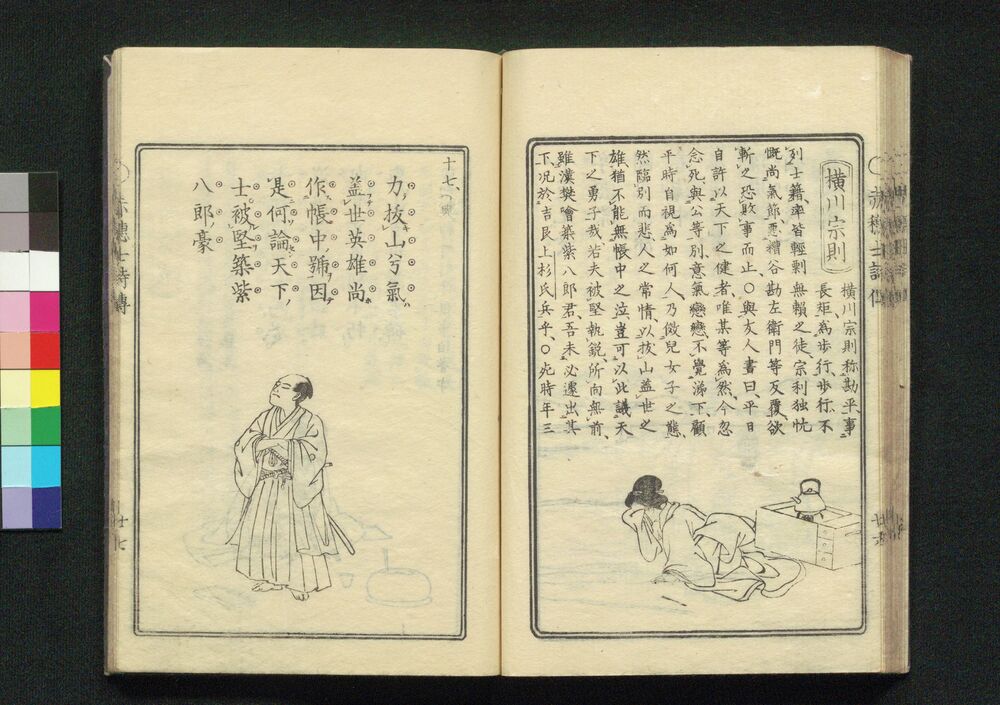 橫川宗則
橫川宗則称勘平事
長矩為步行步行不
列士籍率皆輕剽無賴之徒宗利独忼
慨尚氣節惡糟谷勘左衛門等反覆欲
斬之恐敗事而止〇與友人書曰平日
自許以天下之健者唯某等為然今忽
念死與公等別意氣戀戀不覺涕下顧
平時自視為如何人乃傚兒女子之態
然臨別而悲人之常情以拔山蓋世之
雄猶不能無帳中之泣豈可以此議天
下之勇子哉若夫被堅執銳所向無前
雖漢樊噲築紫八郎君吾未必遽出其
下況於吉良上杉氏兵乎〇死時年三
十七
力拔山兮氣
蓋世英雄尚
作帳中號因
是何論天下
士被堅築紫
八郎豪
赤穗士詩傳
廿七